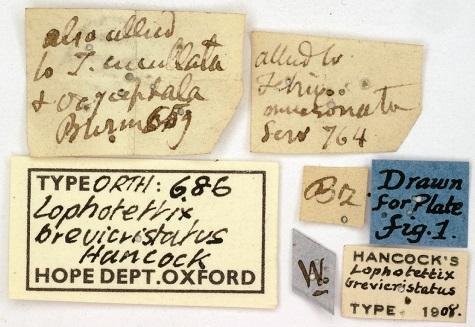 also allied
to T. cucullata
& oxycephala
Burm 659
allied to
Tetrix
mucronata
Serv 764
TYPE ORTH: 686
Lophotettix
brevicristatus
Hancock
HOPE DEPT. OXFORD
Bz
Drawn
for Plate
fig. 1.
W.
HANCOCK'S
Lophotettix
brevicristatus
TYPE 1908.